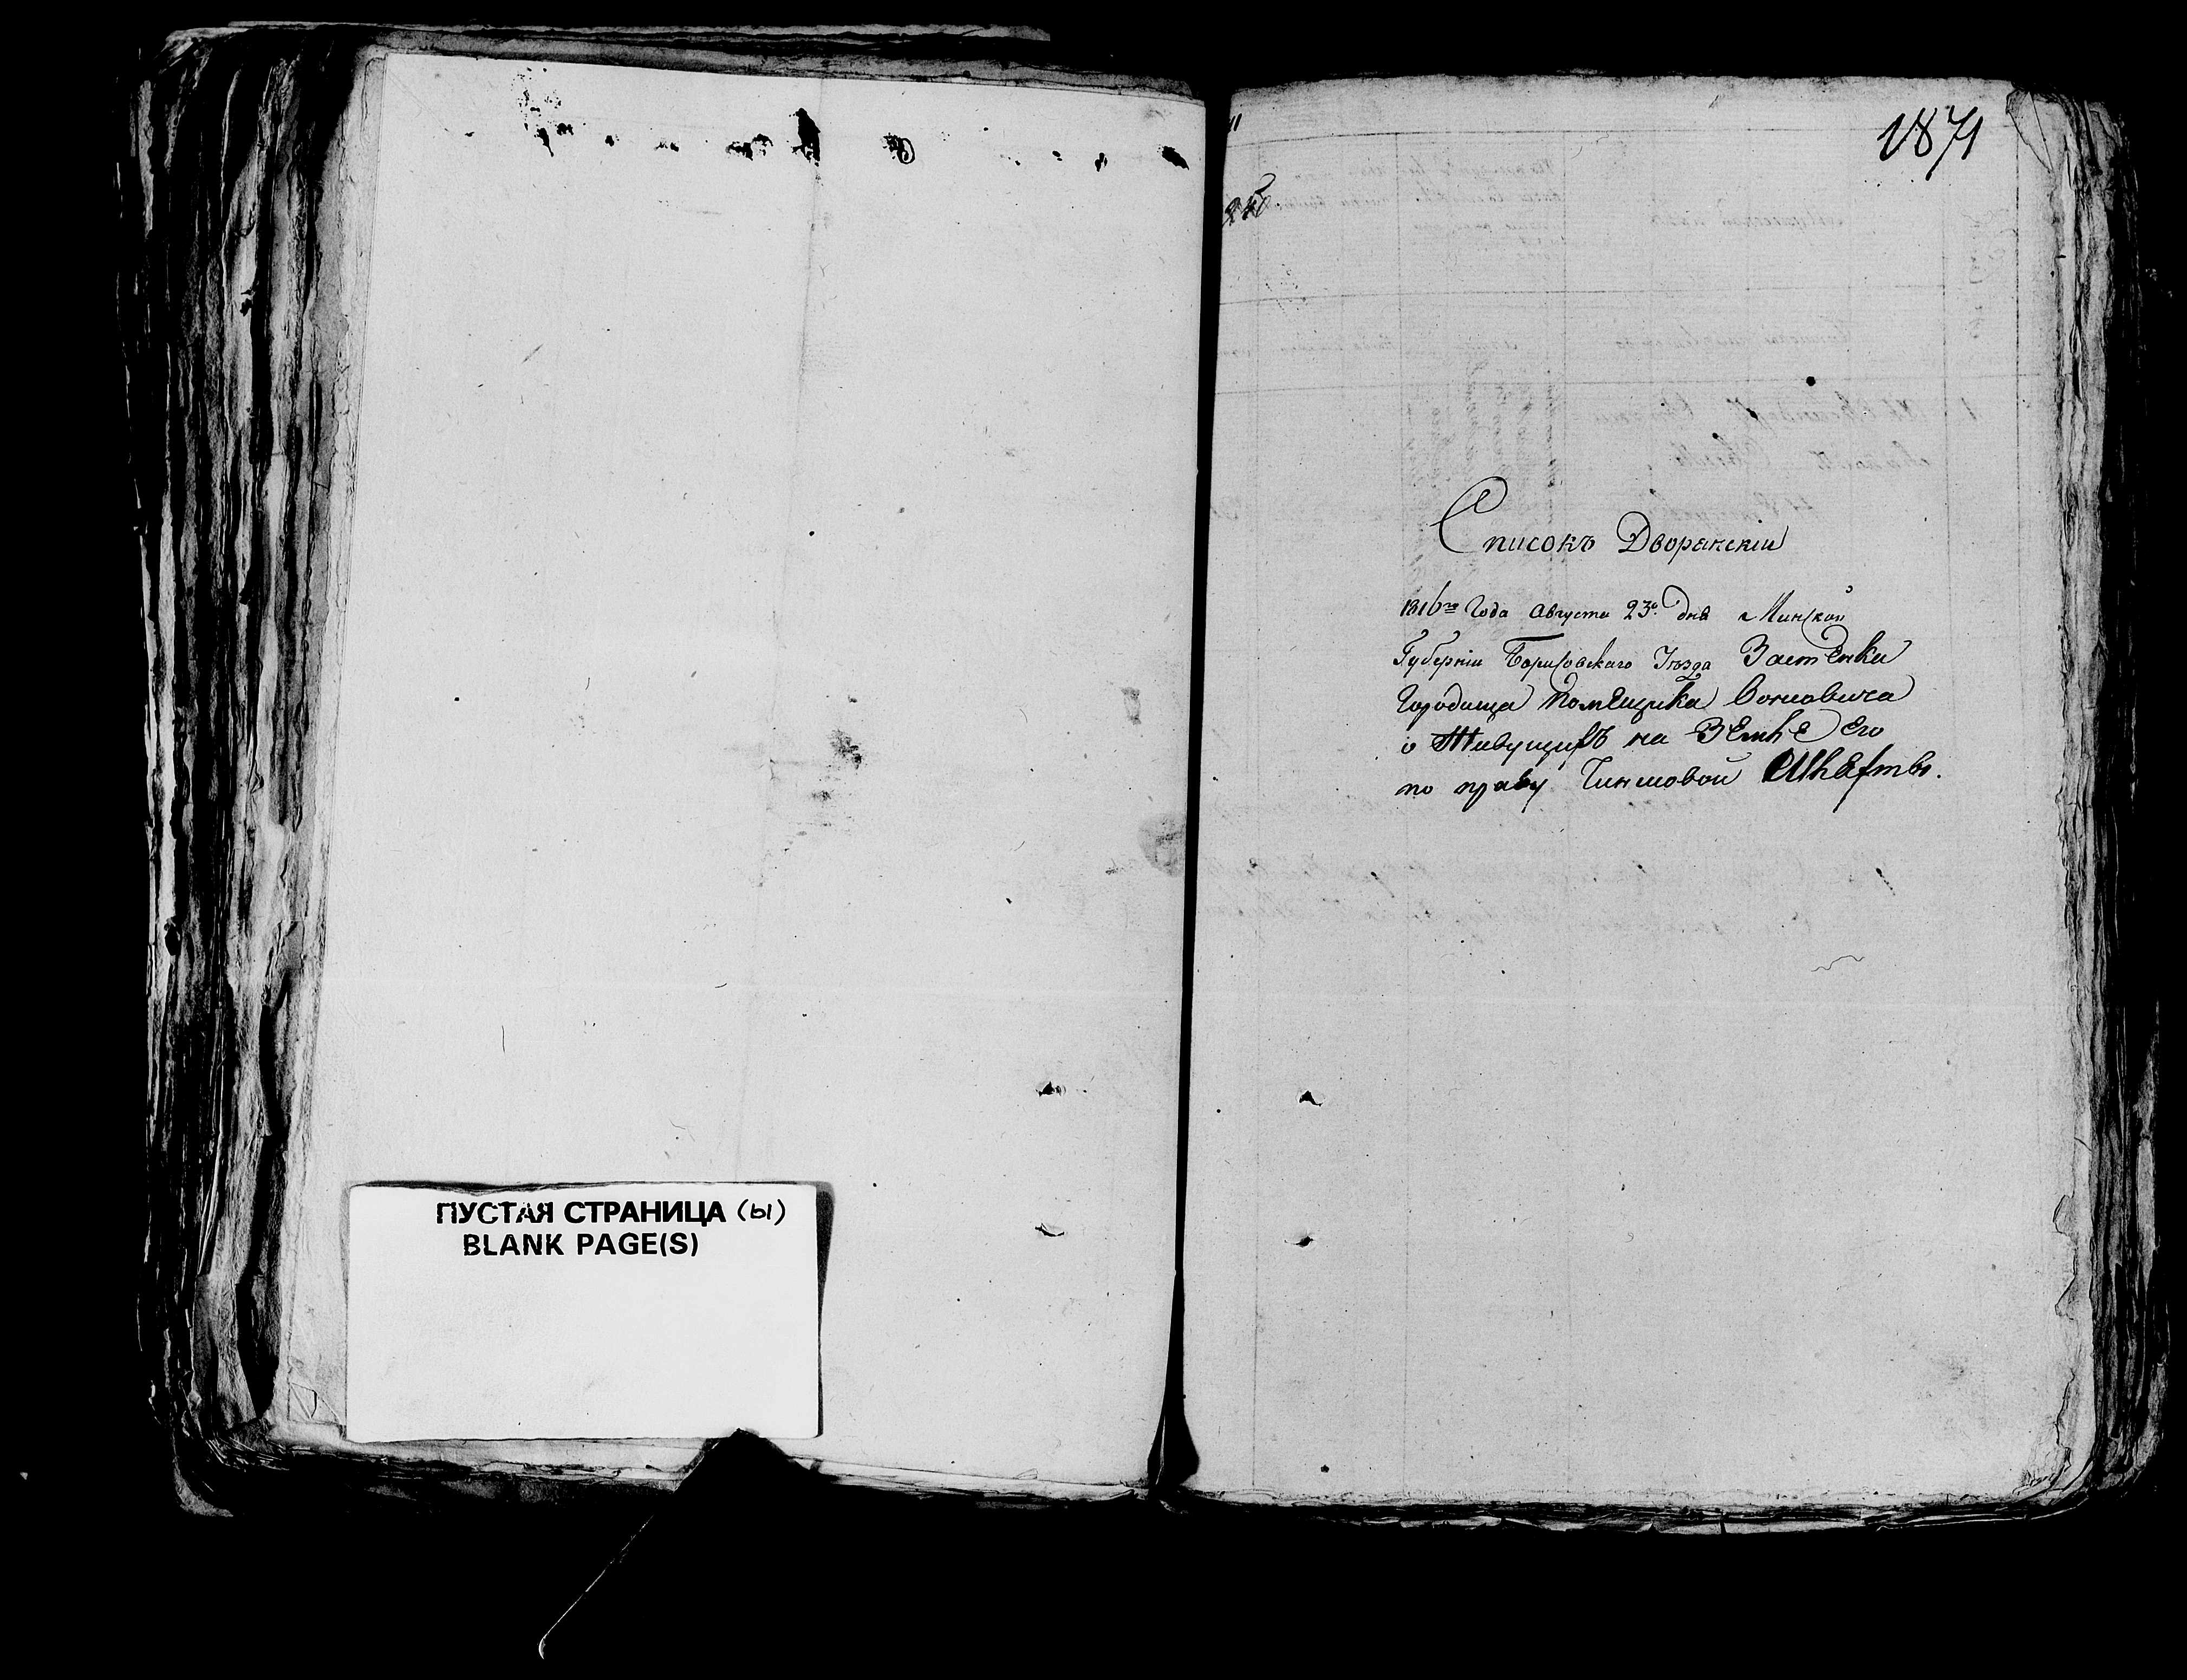 ПУСТАЯ СТРАНИЦА (ы)
BLANK PAGE(S)
1871
Списокъ Дворянскіи
1816го Года Августа 23о дня Минской
Губерніи Борисовскаго Уѣзда Застенки
Городища помещика
о Живущихъ на Земле Его
по праву Чиншовой Шляхты.